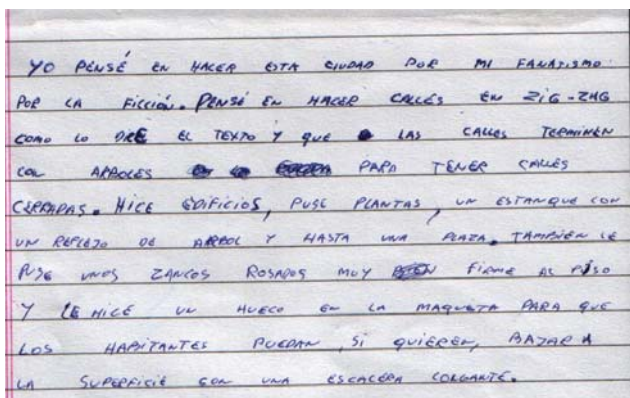 YO PENSÉ EN HACER ESTA CIUDAD POR MI FANATISMO
POR LA FICCIÓN. PENSÉ EN HACER CALLES EN ZIG-ZAG
COMO LO DICE EL TEXTO Y QUE LAS CALLES TERMINEN
CON ARBOLES PARA TENER CALLES
CERRADAS. HICE EDIFICIOS, PUSE PLANTAS, UN ESTANQUE CON
UN REFLEJO DE ARBOL Y HASTA UNA PLAZA. TAMBIÉN LE
PUSE UNOS ZANCOS ROSADOS MUY FIRME AL PISO
Y LE HICE UN HUECO EN LA MAQUETA PARA QUE
LOS HABITANTES PUEDAN, SI QUIEREN, BAJAR A
LA SUPERFICIE CON UNA ESCALERA COLGANTE.